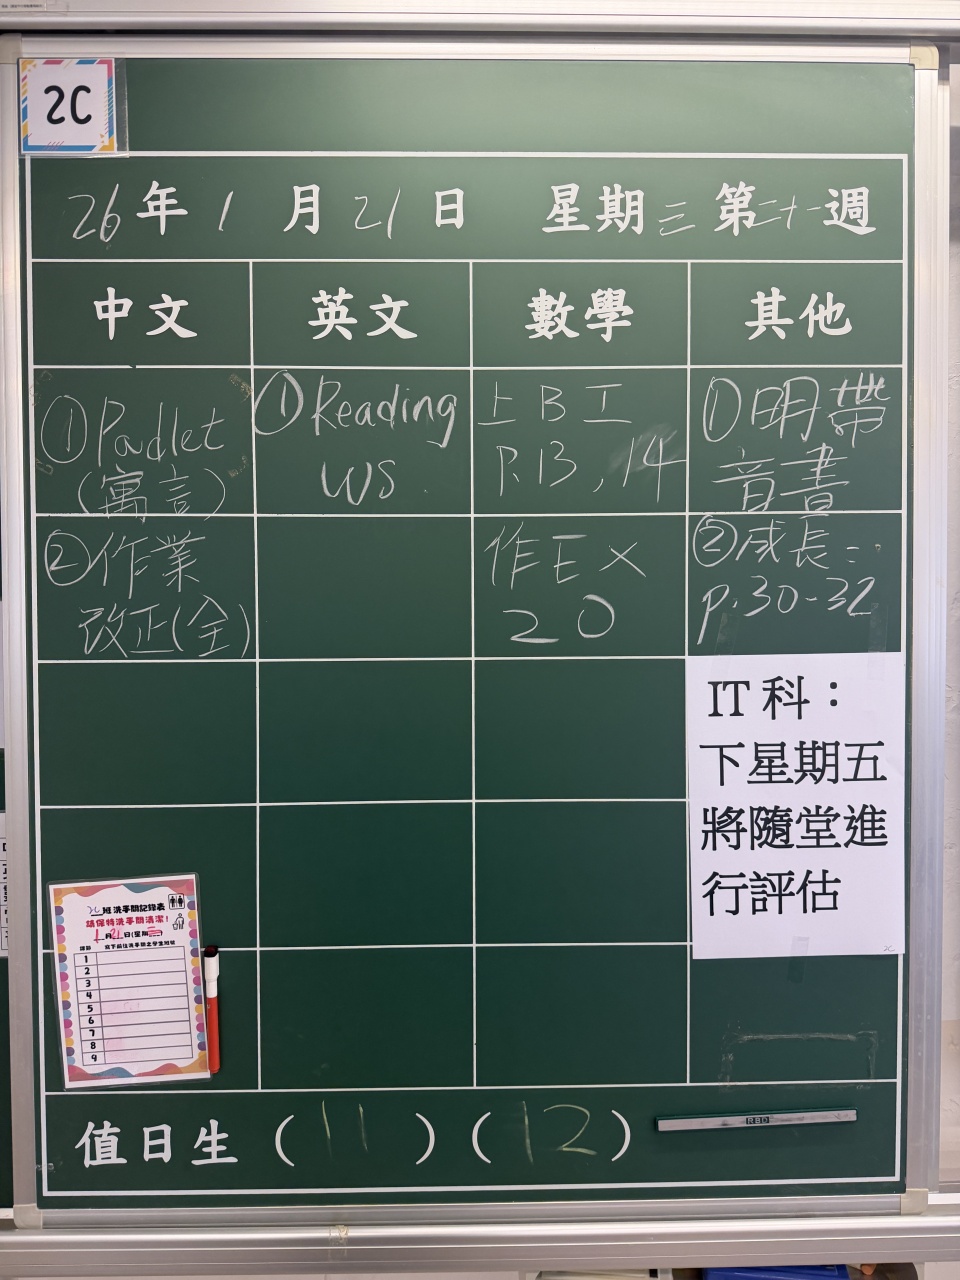 2C
26年1月21日 星期三 第二十一週
中文 英文 數學 其他
①Padlet
(寓言)
①Reading
WS.
上BI
P.13,14
①明帶
音書
②作業
改正(全)
作EX
20
②成長:
p.30-32
IT科:
下星期五
將隨堂進
行評估
2C
2C班洗手間記錄表
請保持洗手間清潔!
1月21日(星期三)
1
2
3
4
5
6
7
8
9
值日生(11)(12)
RBD